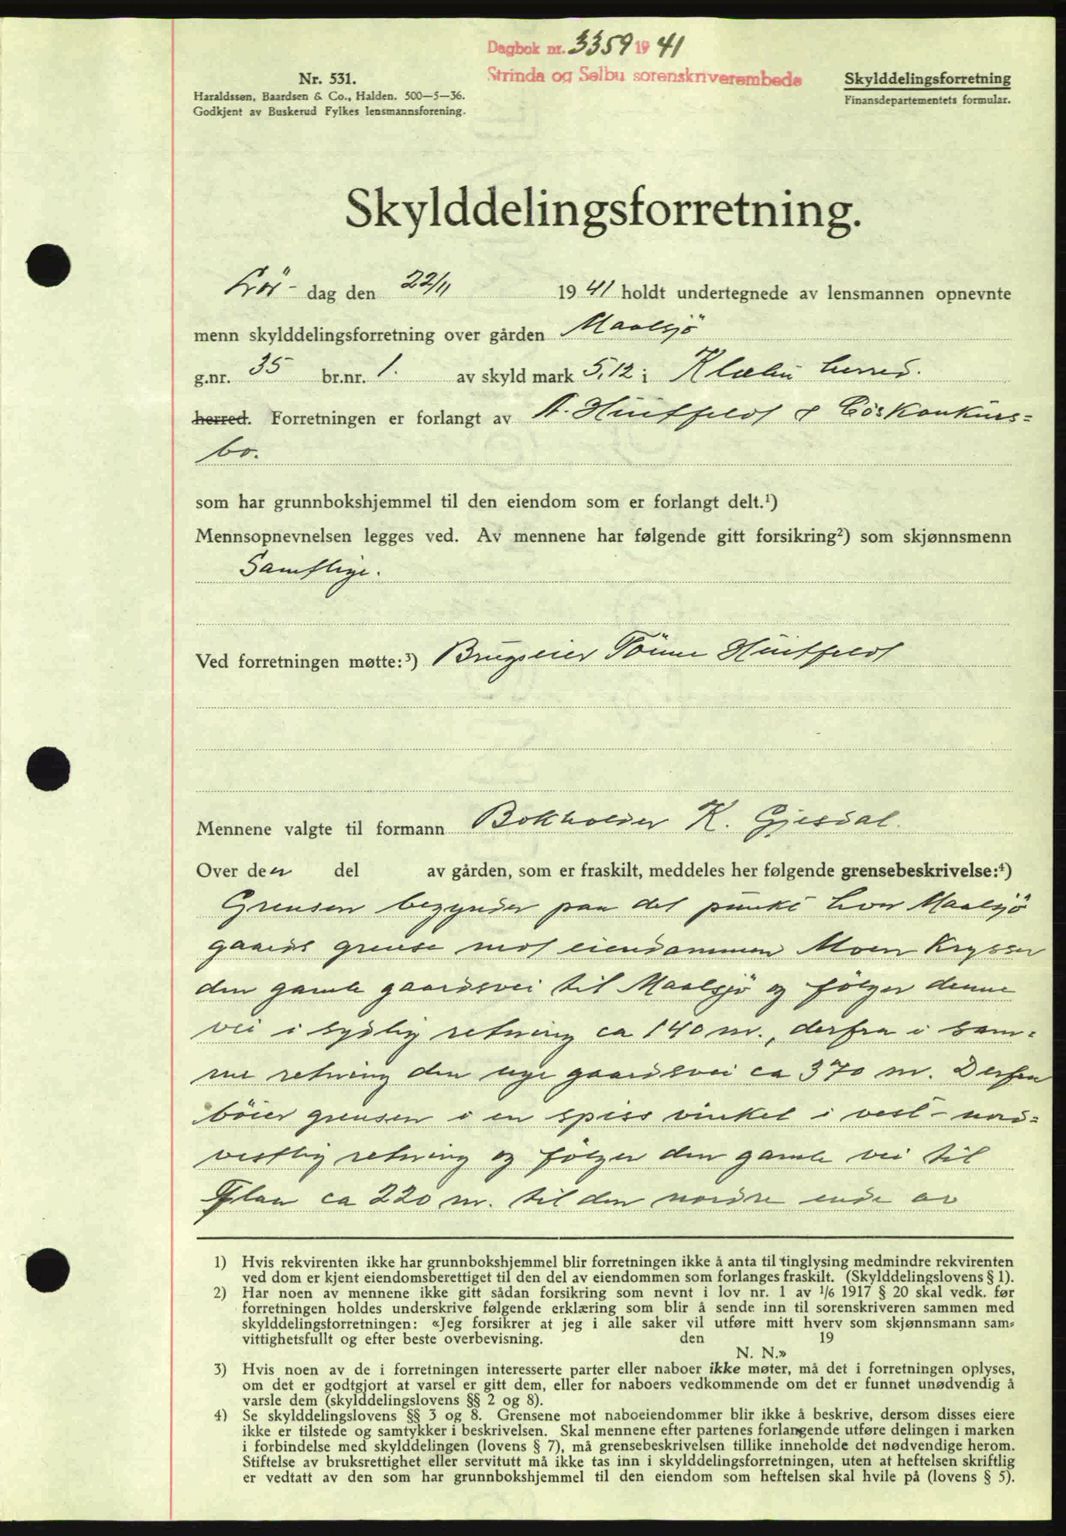 Dagbok nr. 3359 1941
Strinda og Selbu sorenskriverembede
Nr. 531.
Haraldssen, Baardsen & Co., Halden. 500—5—36.
Godkjent av Buskerud Fylkes lensmannsforening.
Skylddelingsforretning
Finansdepartementets formular.
Skylddelingsforretning.
Lör- dag den 22/11 1941 holdt undertegnede av lensmannen opnevnte
menn skylddelingsforretning over gården Maalsjö
g.nr. 35 br.nr. 1. av skyld mark 5,12 i Klæbu herred.
herred. Forretningen er forlangt av A. Huitfeldt & Cos Konkurs=
bo.
som har grunnbokshjemmel til den eiendom som er forlangt delt.¹)
Mennsopnevnelsen legges ved. Av mennene har følgende gitt forsikring²) som skjønnsmenn
Samtlige.
Ved forretningen møtte:³) Brugseier Tönne Huitfeldt
Mennene valgte til formann Bokholder K. Gjesdal.
Over den del av gården, som er fraskilt, meddeles her følgende grensebeskrivelse:⁴)
Grensen begynder paa det punkt hvor Maalsjö
gaards grense mot eiendommen Moen krysser
den gamle gaardsvei til Maalsjö og fölger denne
vei i sydlig retning ca 140 m., derfra i sam=
me retning den nye gaardsvei ca 370 m. Derfra
böier grensen i en spiss vinkel i vest- nord=
vestlig retning og fölger den gamle vei til
ca 220 m. til den nordre ende av
1) Hvis rekvirenten ikke har grunnbokshjemmel blir forretningen ikke å anta til tinglysing medmindre rekvirenten
ved dom er kjent eiendomsberettiget til den del av eiendommen som forlanges fraskilt. (Skylddelingslovens § 1).
2) Har noen av mennene ikke gitt sådan forsikring som nevnt i lov nr. 1 av 1/6 1917 § 20 skal vedk. før
forretningen holdes underskrive følgende erklæring som blir å sende inn til sorenskriveren sammen med
skylddelingsforretningen: «Jeg forsikrer at jeg i alle saker vil utføre mitt hverv som skjønnsmann sam-
vittighetsfullt og efter beste overbevisning. den 19
N. N.»
3) Hvis noen av de i forretningen interesserte parter eller naboer ikke møter, må det i forretningen oplyses,
om det er godtgjort at varsel er gitt dem, eller for naboers vedkommende om det er funnet unødvendig å
varsle dem (skylddelingslovens §§ 2 og 8).
4) Se skylddelingslovens §§ 3 og 8. Grensene mot naboeiendommer blir ikke å beskrive, dersom disses eiere
ikke er tilstede og samtykker i beskrivelsen. Skal mennene efter partenes forlangende utføre delingen i marken
i forbindelse med skylddelingen (lovens § 7), må grensebeskrivelsen tillike inneholde det nødvendige herom.
Stiftelse av bruksrettighet eller servitutt må ikke tas inn i skylddelingsforretningen, uten at heftelsen skriftlig
er vedtatt av den som har grunnbokshjemmel til den eiendom som heftelsen skal hvile på (lovens § 5).